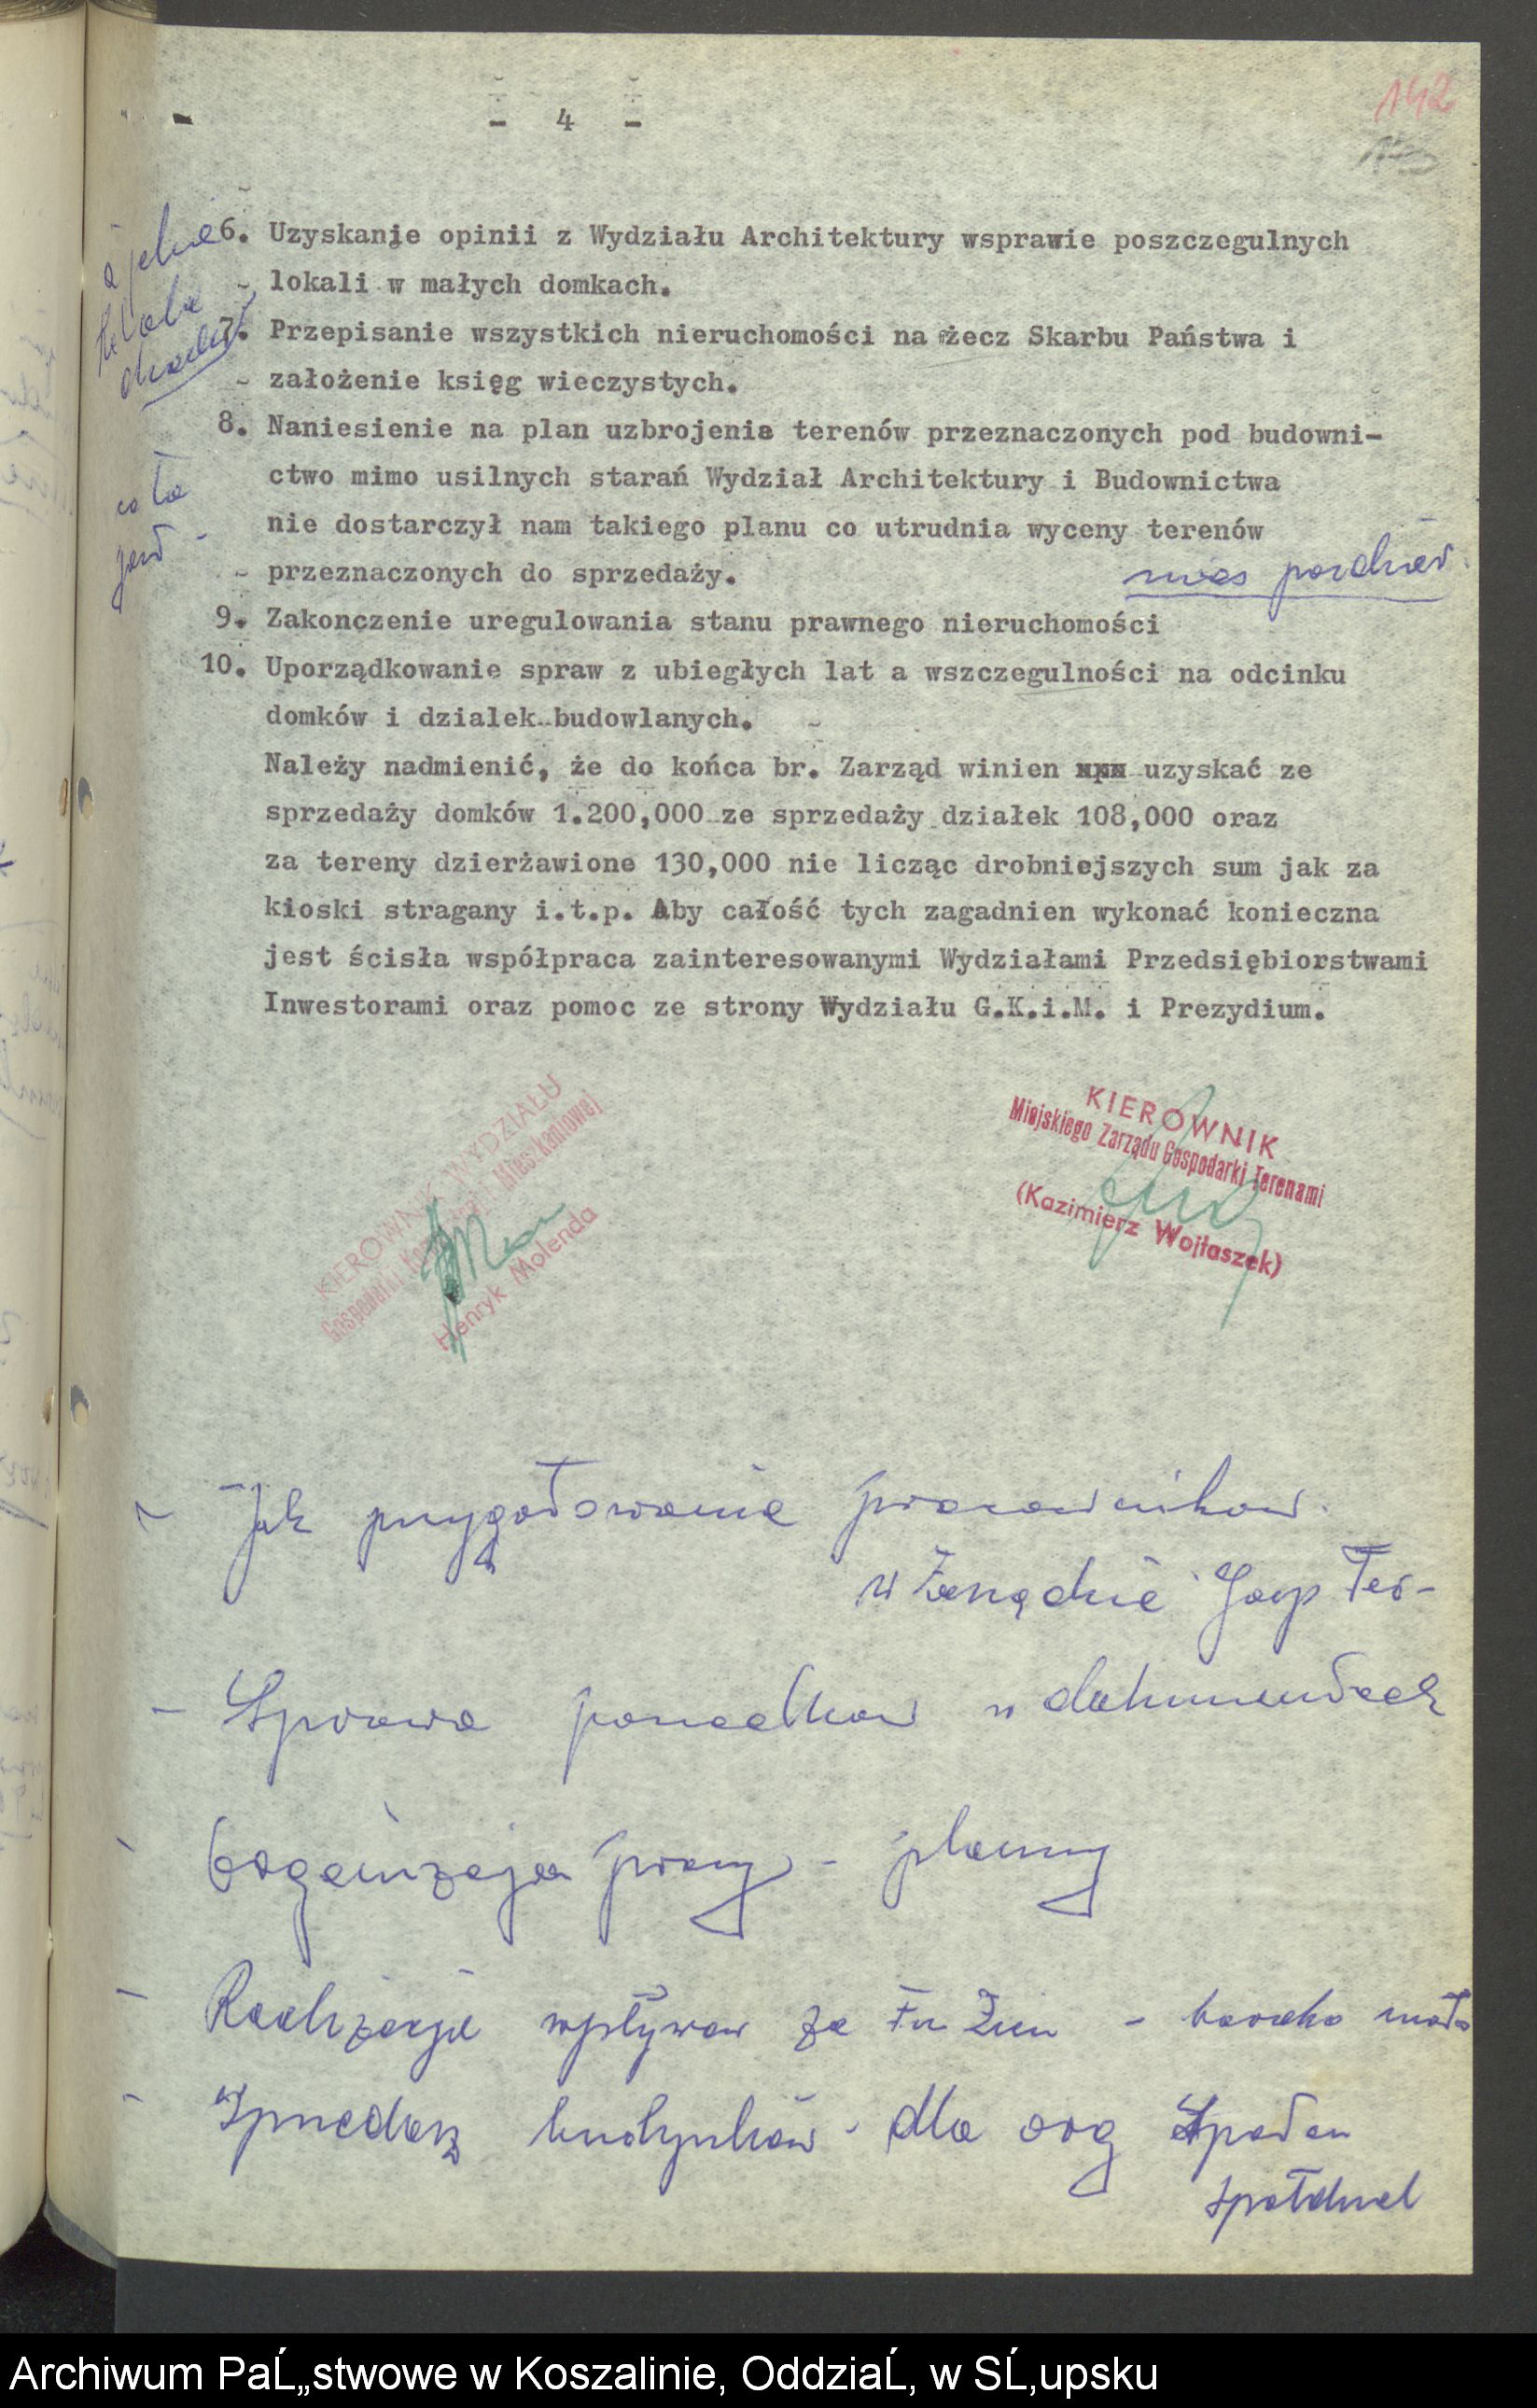 - 4 -
142
6. Uzyskanie opinii z Wydziału Architektury wsprawie poszczegulnych
lokali w małych domkach.
7. Przepisanie wszystkich nieruchomości na żecz Skarbu Państwa i
założenie księg wieczystych.
8. Naniesienie na plan uzbrojenia terenów przeznaczonych pod budowni-
ctwo mimo usilnych starań Wydział Architektury i Budownictwa
nie dostarczył nam takiego planu co utrudnia wyceny terenów
przeznaczonych do sprzedaży.
9. Zakonczenie uregulowania stanu prawnego nieruchomości
10. Uporządkowanie spraw z ubiegłych lat a wszczegulności na odcinku
domków i dzialek budowlanych.
Należy nadmienić, że do końca br. Zarząd winien uzyskać ze
sprzedaży domków 1.200,000 ze sprzedaży działek 108,000 oraz
za tereny dzierżawione 130,000 nie licząc drobniejszych sum jak za
kioski stragany i.t.p. Aby całość tych zagadnien wykonać konieczna
jest ścisła współpraca zainteresowanymi Wydziałami Przedsiębiorstwami
Inwestorami oraz pomoc ze strony Wydziału G.K.i.M. i Prezydium.
KIEROWNIK WYDZIAŁU
Gospodarki Mieszkaniowej
Henryk Molenda
KIEROWNIK
Miejskiego Zarządu Gospodarki Terenami
(Kazimierz Wojtaszek)
- Jak przygotowanie pracowników
w Zarządzie Gosp Ter-
- Sprawa porządków w dokumentach
- organizacja pracy - planny
- Realizacja wpływów za - bardzo mało
- Sprzedaż budynków - dla org
spółdziel
Archiwum PaĹ„stwowe w Koszalinie, OddziaĹ‚ w SĹ‚upsku